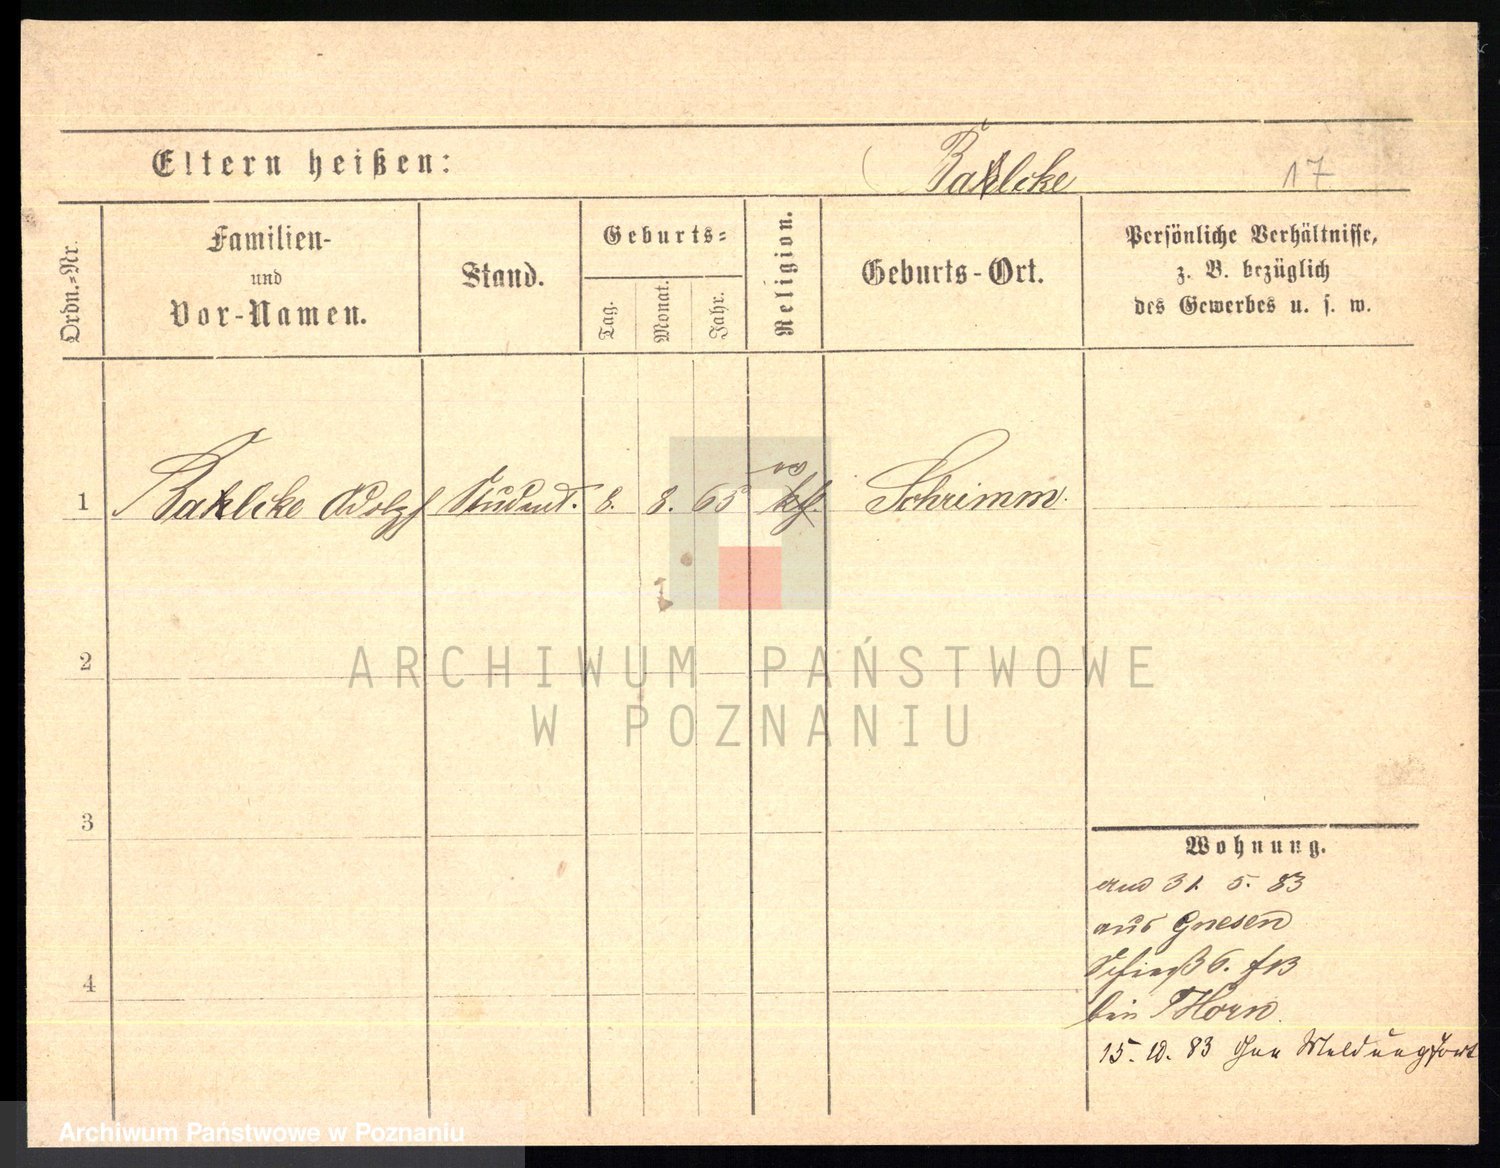 Eltern heißen:
Bahlcke
17
Ordn.-Nr.
Familien-
und
Vor-Namen.
Stand.
Geburts-
Tag.
Monat.
Jahr.
Religion.
Geburts-Ort.
Persönliche Verhältnisse,
z. B. bezüglich
des Gewerbes u. s. w.
1 Bahlcke Adolph Student. 8. 8. 65 Schrimm.
ev
2
3
4
ARCHIWUM PAŃSTWOWE
W POZNANIU
Wohnung.
31. 5. 83
aus Gnesen
6.
bei Horn.
15. 10. 83 Meldung fort
Archiwum Państwowe w Poznaniu